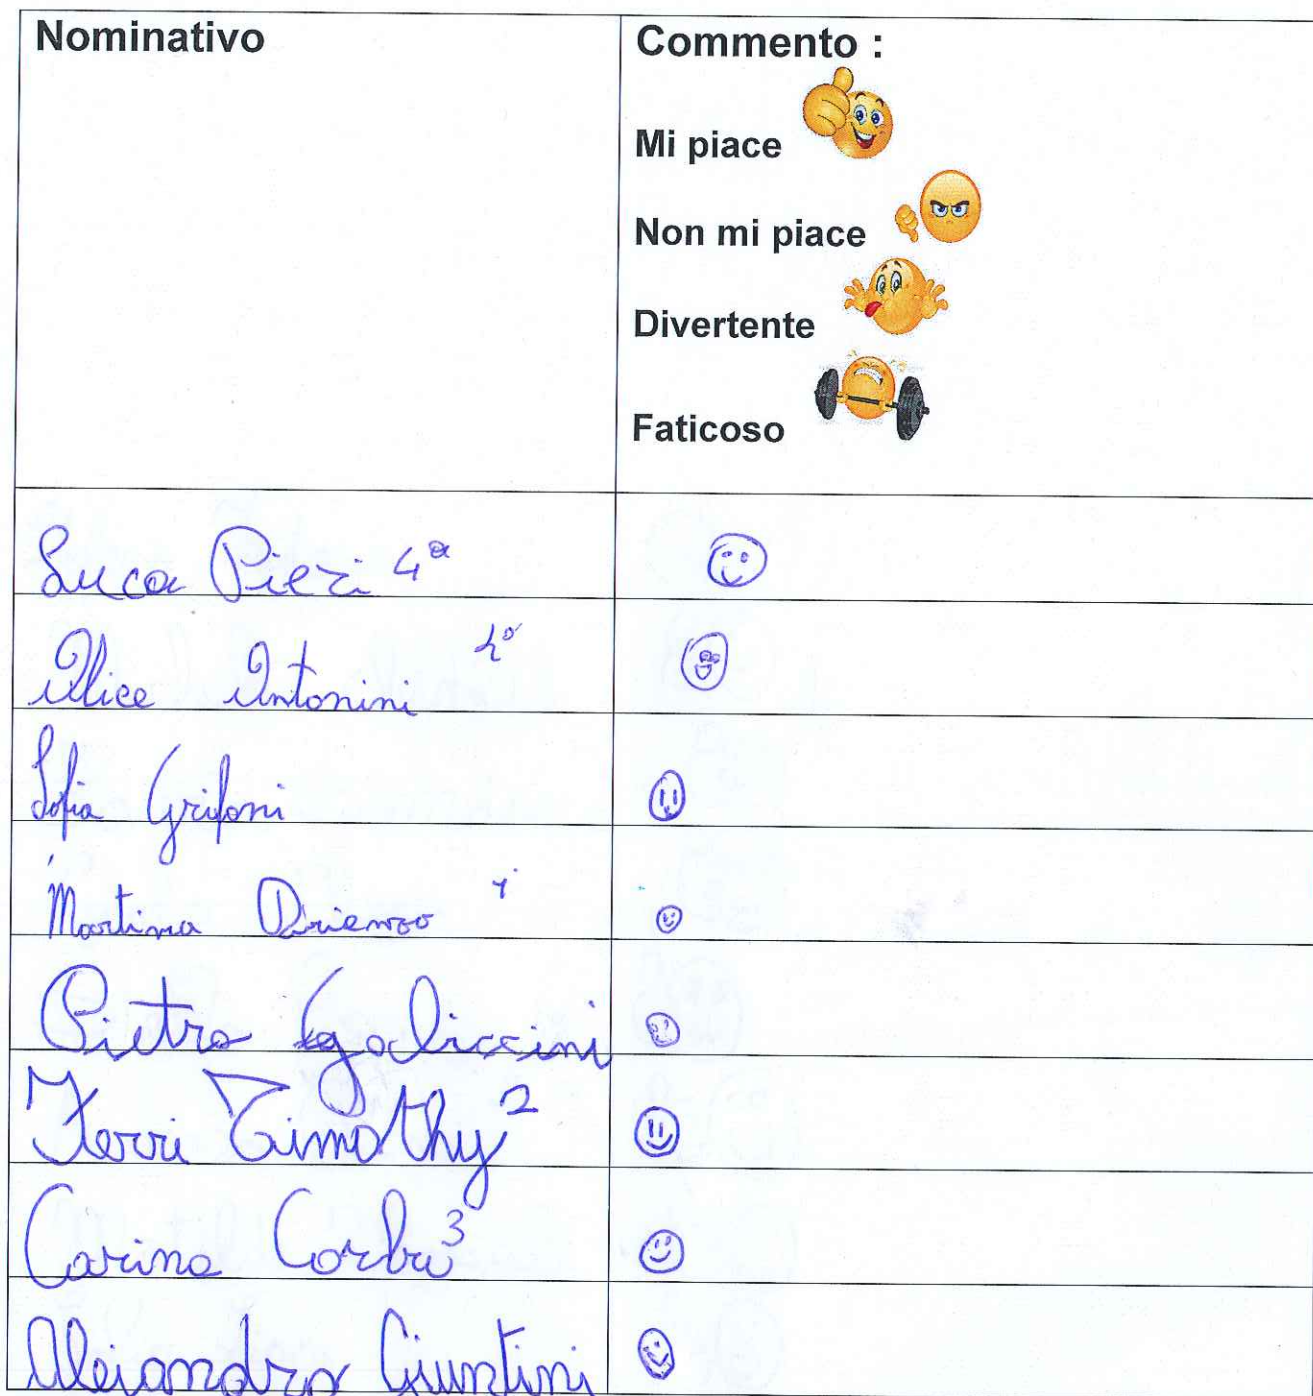 Nominativo
Commento :
Mi piace
Non mi piace
Divertente
Faticoso
Luca Pieri 4ª
Alice Antonini
Sofia Grifoni
Martina Drienzo
Pietro Egaliccini
Ferri Timothy 2
Carina Corbu 3
Aleiandro Giuntini